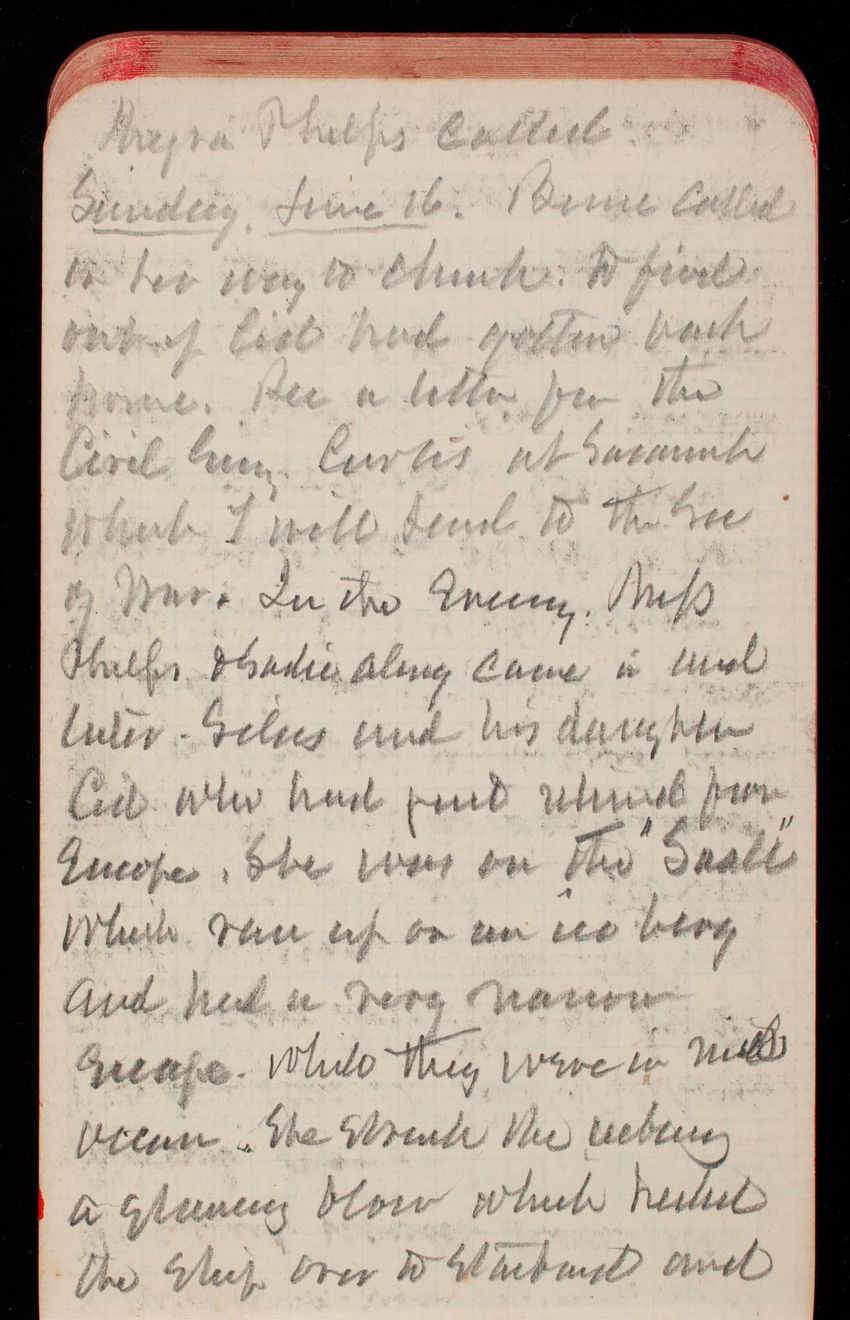 Phelps called.
Sunday, June 16. Bune called
on her way to church. to find
out if Cid had gotten back
home. Rec a letter from the
Civil Eng. Curtis at Savannah
which I will send to the Sec
of War. In the Evening. Miss
Phelps & Sadie along came in and
later - Silas and his daughter
Cid who had just returned from
Europe. She was on the "Saale"
which ran up on an ice berg
and had a very narrow
Escape. While they were in mid
ocean. She struck the iceberg
a glancing blow which heeled
the Ship over to Starboard and